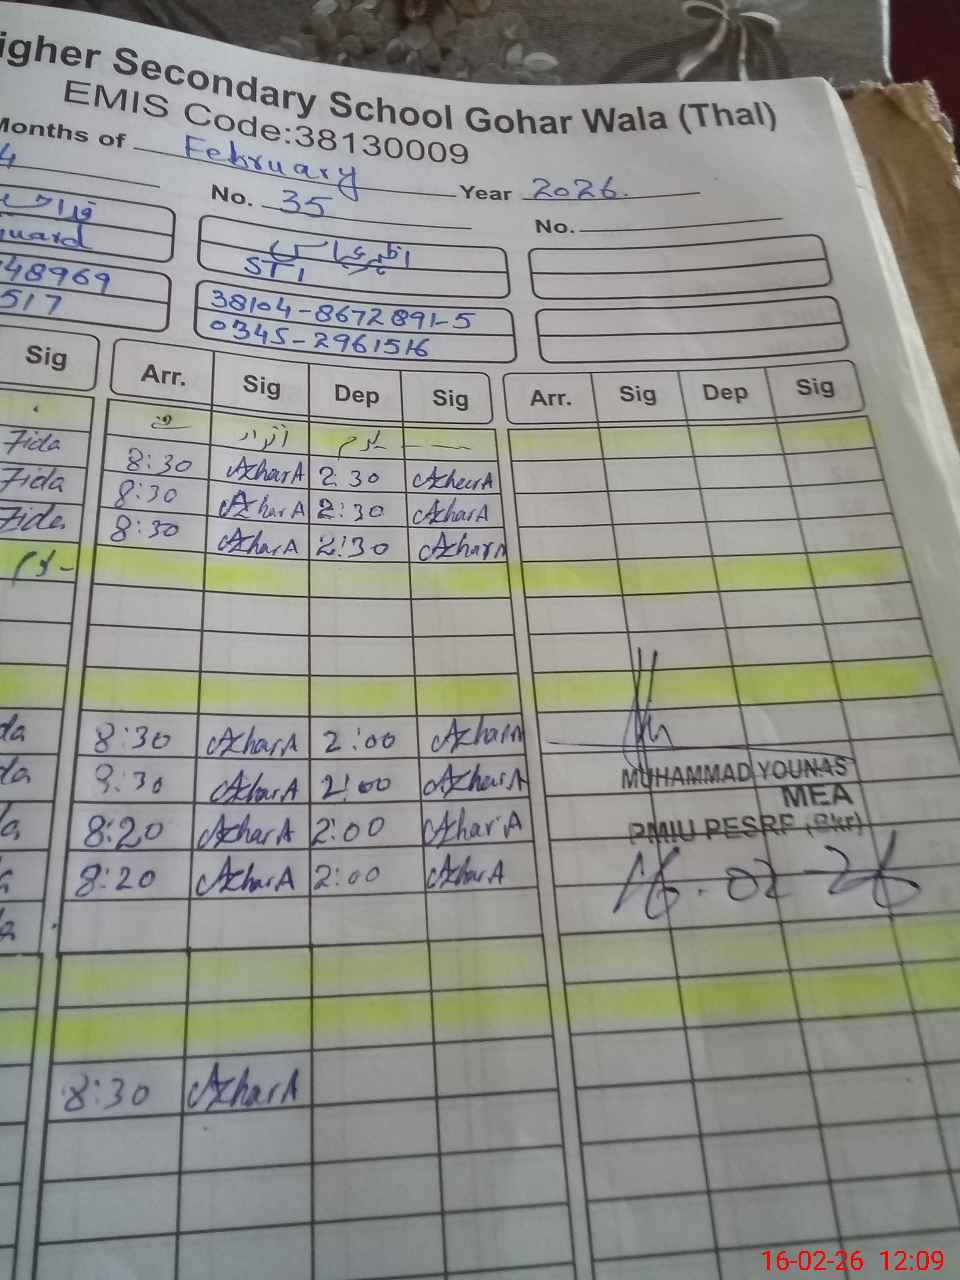 igher Secondary School Gohar Wala (Thal)
EMIS Code:38130009
Months of February Year 2026.
4 No. 35 No.
guard
اظہر عباس
STI
48969 38104-8672891-5
517 0345-2961516
Sig Arr. Sig Dep Sig Arr. Sig Dep Sig
اتوار
Fida 8:30 AzharA 2:30 AzharA
Fida 8:30 AzharA 2:30 AzharA
Fida 8:30 AzharA 2:30 AzharA
da 8:30 AzharA 2:00 AzharA
da 8:30 AzharA 2:00 AzharA
a 8:20 AzharA 2:00 AzharA
a 8:20 AzharA 2:00 AzharA
a
8:30 AzharA
MUHAMMAD YOUNAS
MEA
PMIU PESRP (Bkr)
16-02-26
16-02-26 12:09